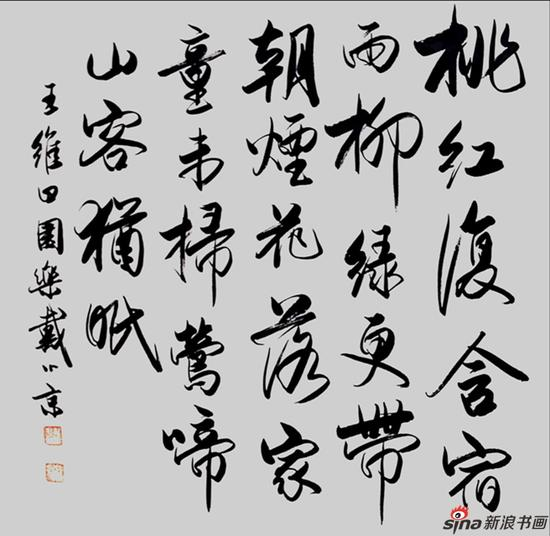 桃红復含宿
雨柳緑更帶
朝煙花落家
童未掃鶯啼
山客猶眠
王維田園樂戴小京
sina新浪书画